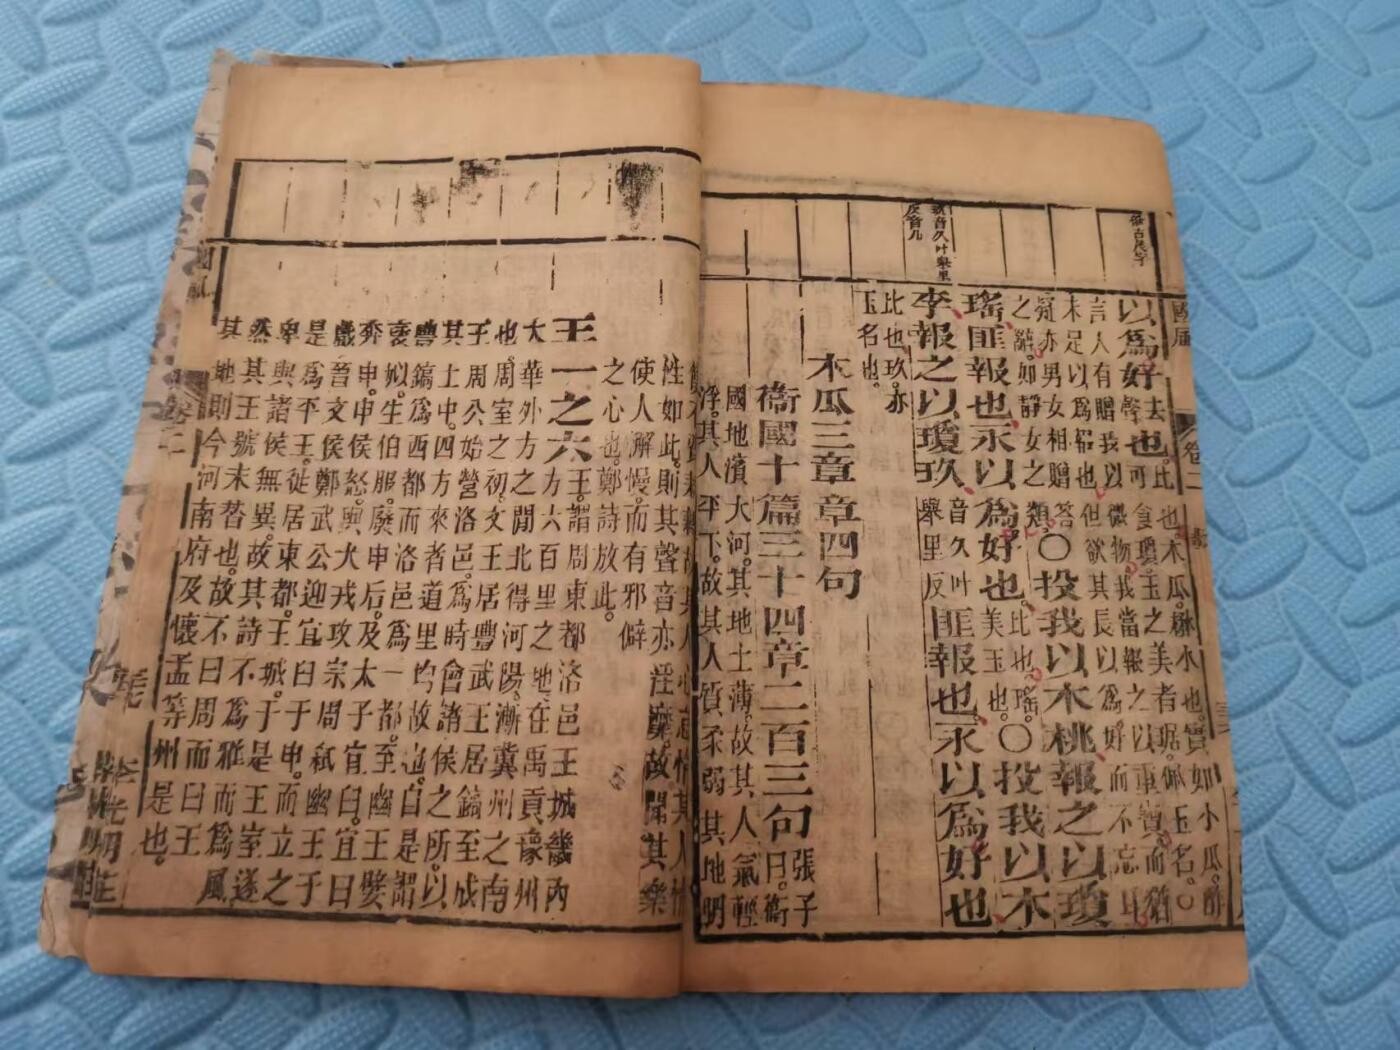 以為好去聲也比也木瓜楙木也實如小瓜酢
可食瓊玉之美者琚佩玉名○
言人有贈我以微物我當報之以重寶而猶
未足以為報也但欲其長以為好而不忘耳
疑亦男女相贈答○投我以木桃報之以瓊
之辭如靜女之類
瑤匪報也永以為好也比也瑤美玉也○投我以木
李報之以瓊玖音久叶舉里反匪報也永以為好也
比也玖亦
玉名也
木瓜三章章四句
衛國十篇三十四章二百三句張子曰衛
國地濱大河其地土薄故其人氣輕
浮其人平下故其人質柔弱其地
性如此則其聲音亦淫靡故聞其樂
使人解慢而有邪僻
之心也鄭詩放此
王一之六王謂周東都洛邑王城畿內
方六百里之地在禹貢豫州
大華外方之閒北得河陽漸冀州之南
也周室之初文王居豐武王居鎬至成
王周公始營洛邑為時會諸侯之所以
其土中四方來者道里均故也自是謂
豐鎬為西都而洛邑為東都至幽王嬖
褒姒生伯服廢申后及太子宜臼宜臼
奔申申侯怒與犬戎攻宗周弒幽王于
戲晉文侯鄭武公迎宜臼于申而立之
是為平王徙居東都王城於是王室遂
卑與諸侯無異故其詩不為雅而為風
然其王號未替也故不曰周而曰王
其地則今河南府及懷孟等州是也
國風
卷二